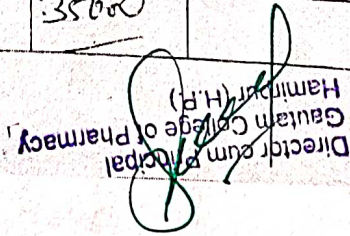 35000
Director cum Principal
Gautam College of Pharmacy,
Hamirpur (H.P.)